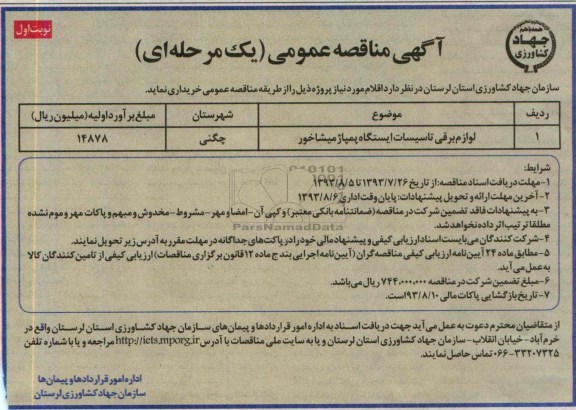 نوبت اول
جهاد
کشاورزی
آگهی مناقصه عمومی (یک مرحله ای)
سازمان جهاد کشاورزی استان لرستان در نظر دارد اقلام مورد نیاز پروژه ذیل را از طریقه مناقصه عمومی خریداری نماید.
ردیف موضوع شهرستان مبلغ برآورد اولیه (میلیون ریال)
۱ لوازم برقی تاسیسات ایستگاه پمپاژ میشاخور چگنی ۱۴۸۷۸
شرایط:
۱-مهلت دریافت اسناد مناقصه: از تاریخ ۱۳۹۳/۷/۲۶ تا ۱۳۹۳/۸/۵
۲-آخرین مهلت ارائه و تحویل پیشنهادات: پایان وقت اداری ۱۳۹۳/۸/۶
۳-به پیشنهادات فاقد تضمین شرکت در مناقصه (ضمانتنامه بانکی معتبر) و کپی آن-امضا و مهر-مشروط-مخدوش و مبهم و پاکات مهر و موم نشده
مطلقا ترتیب اثر داده نخواهد شد.
۴-شرکت کنندگان می بایست اسناد ارزیابی کیفی و پیشنهاد مالی خود را در پاکت های جداگانه در مهلت مقرر به آدرس زیر تحویل نمایند.
۵-مطابق ماده ۲۴ آیین نامه ارزیابی کیفی مناقصه گران (آیین نامه اجرایی بند ج ماده ۱۲ قانون برگزاری مناقصات) ارزیابی کیفی از تامین کنندگان کالا
به عمل می آید.
۶-مبلغ تضمین شرکت در مناقصه ۷۴۴.۰۰۰.۰۰۰ ریال می باشد.
۷-تاریخ بازگشایی پاکات مالی ۹۳/۸/۱۰ است.
ParsNamadData
از متقاضیان محترم دعوت به عمل می آید جهت دریافت اسناد به اداره امور قراردادها و پیمان های سازمان جهاد کشاورزی استان لرستان واقع در
خرم آباد-خیابان انقلاب-سازمان جهاد کشاورزی استان لرستان و یا به سایت ملی مناقصات با آدرس http://iets.mporg.ir مراجعه و یا با شماره تلفن
۰۶۶-۳۳۲۰۷۳۲۵ تماس حاصل نمایند.
اداره امور قراردادها و پیمان ها
سازمان جهاد کشاورزی لرستان